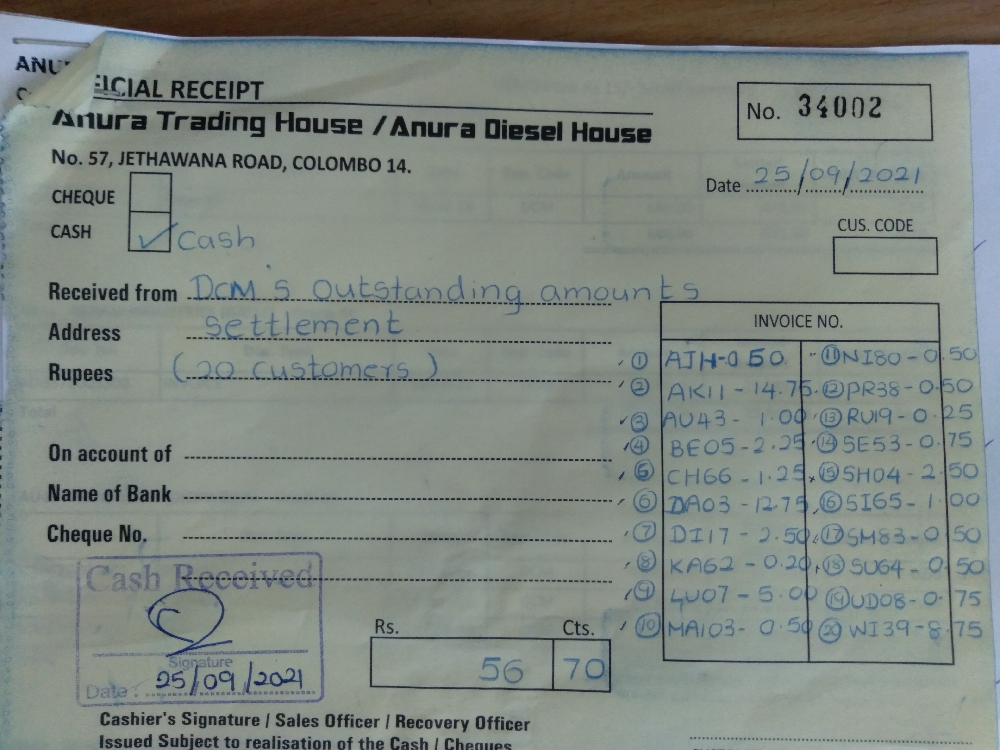 ANU
FICIAL RECEIPT
No. 34002
Anura Trading House / Anura Diesel House
No. 57, JETHAWANA ROAD, COLOMBO 14.
Date 25/09/2021
CHEQUE
CASH ✓ Cash
CUS. CODE
Received from DCM S Outstanding amounts
Address Settlement
Rupees (20 customers)
On account of
Name of Bank
Cheque No.
INVOICE NO.
① AJH-0 50 ⑪ NI80-0.50
② AK11-14.75 ⑫ PR38-0.50
③ AU43-1.00 ⑬ RU19-0.25
④ BE05-2.25 ⑭ SE53-0.75
⑤ CH66-1.25 ⑮ SH04-2.50
⑥ DA03-12.75 ⑯ SI65-1.00
⑦ DI17-2.50 ⑰ SM83-0.50
⑧ KA62-0.20 ⑱ SU64-0.50
⑨ LU07-5.00 ⑲ UD08-0.75
⑩ MA103-0.50 ⑳ WI39-8.75
Cash Received
Signature
Date: 25/09/2021
Rs. Cts.
56 70
Cashier's Signature / Sales Officer / Recovery Officer
Issued Subject to realisation of the Cash / Cheques